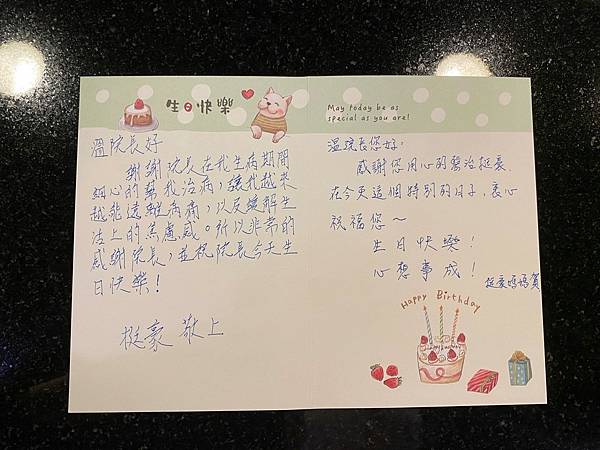 生日快樂
溫院長好
謝謝院長在我生病期間
細心的幫我治病,讓我越來
越能遠離病痛,以及緩解生
活上的焦慮感。所以非常的
感謝院長,並祝院長今天生
日快樂!
挺豪 敬上
May today be as
special as you are!
溫院長您好,
感謝您用心的醫治挺豪,
在今天這個特別的日子,衷心
祝福您~
生日快樂!
心想事成!
挺豪媽媽賀
Happy Birthday